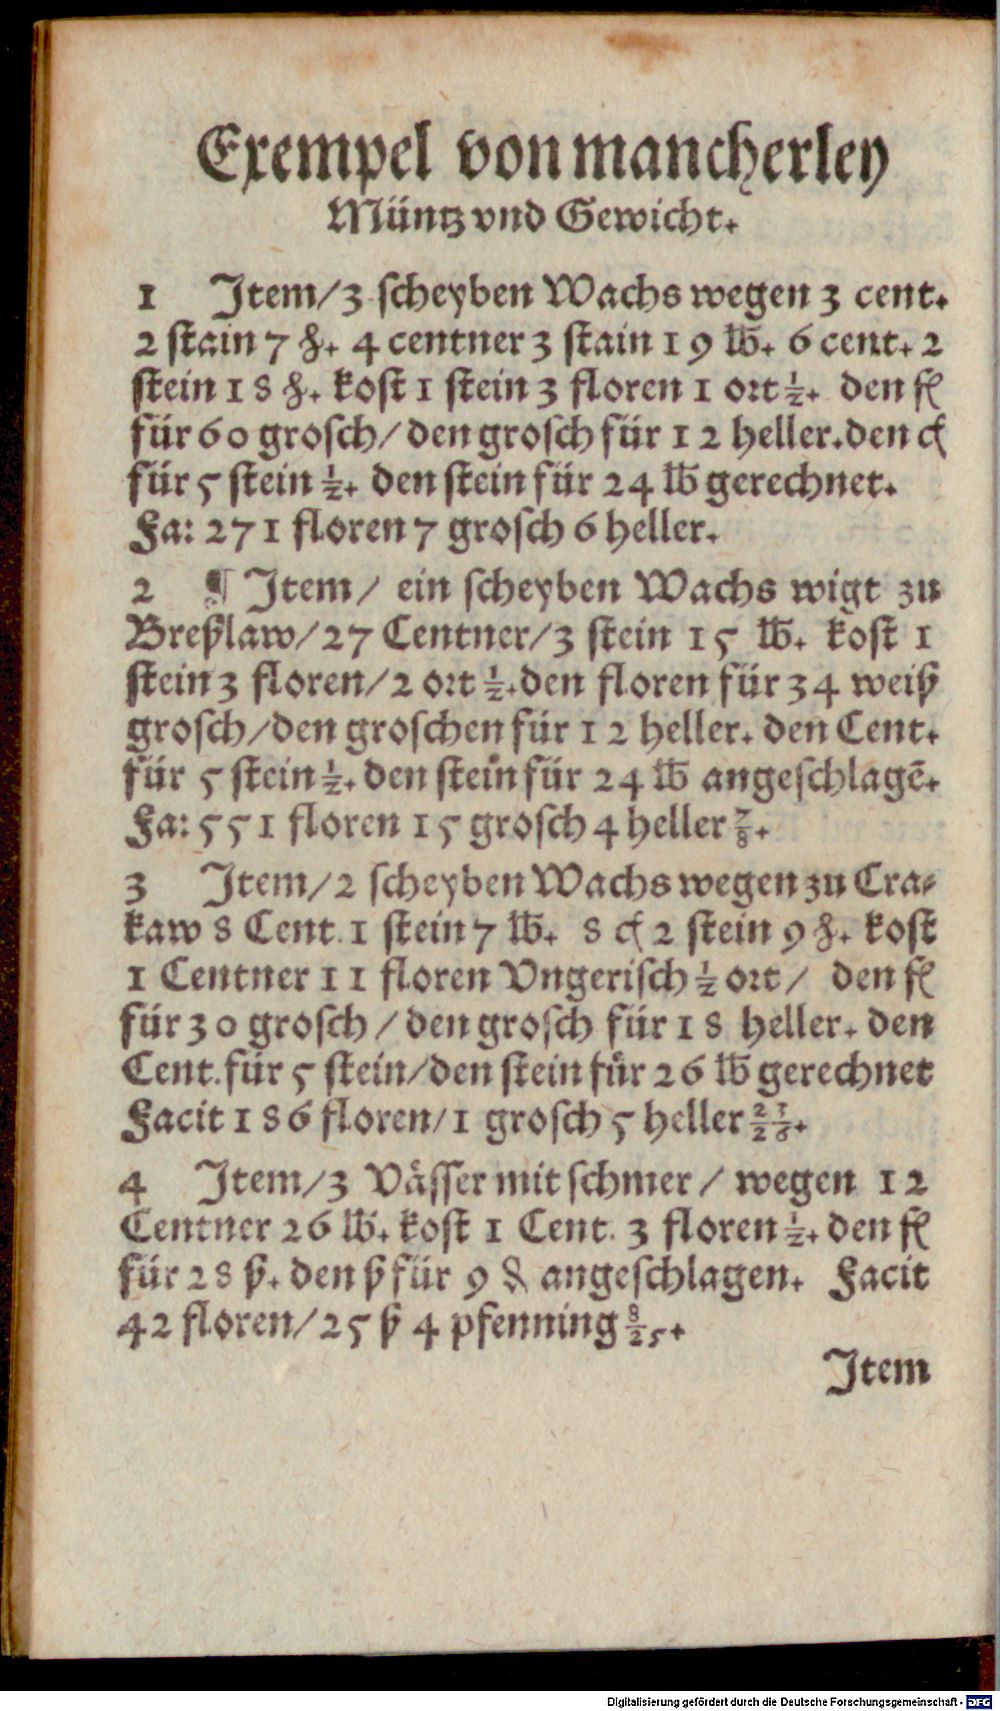 Exempel von mancherley
Müntz vnd Gewicht.
1 Item/3 scheyben Wachs wegen 3 cent.
2 stain 7 ℔. 4 centner 3 stain 19 ℔. 6 cent. 2
stein 18 ℔. kost 1 stein 3 floren 1 ort ½. den fl
für 60 grosch/den grosch für 12 heller. den c
für 5 stein ½. den stein für 24 ℔ gerechnet.
Fa: 271 floren 7 grosch 6 heller.
2 ¶ Item/ ein scheyben Wachs wigt zu
Breßlaw/27 Centner/3 stein 15 ℔. kost 1
stein 3 floren/2 ort ½. den floren für 34 weiß
grosch/den groschen für 12 heller. den Cent.
für 5 stein ½. den stein für 24 ℔ angeschlagē.
Fa: 551 floren 15 grosch 4 heller ⅞.
3 Item/2 scheyben Wachs wegen zu Cra-
kaw 8 Cent. 1 stein 7 ℔. 8 c 2 stein 9 ℔. kost
1 Centner 11 floren Vngerisch ½ ort/ den fl
für 30 grosch/den grosch für 18 heller. den
Cent. für 5 stein/den stein für 26 ℔ gerechnet
Facit 186 floren/1 grosch 5 heller
4 Item/3 Vässer mit schmer/ wegen 12
Centner 26 ℔. kost 1 Cent. 3 floren ½. den fl
für 28 ß. den ß für 9 ₰ angeschlagen. Facit
42 floren/25 ß 4 pfenning 8/25.
Item
Digitalisierung gefördert durch die Deutsche Forschungsgemeinschaft - DFG